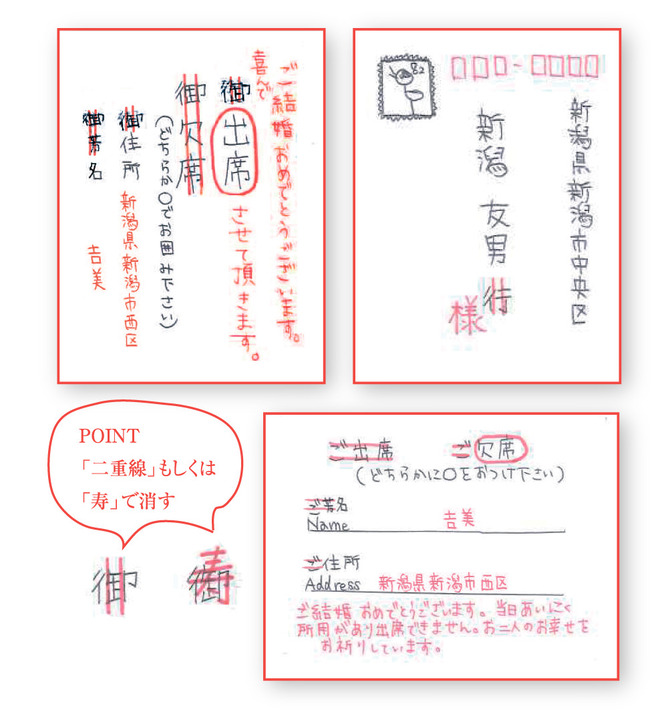 ご結婚おめでとうございます。
喜んで
御出席させて頂きます。
御欠席
(どちらか○でお囲み下さい)
御住所 新潟県新潟市西区
御芳名 吉美
82
新潟県新潟市中央区
新潟 友男 行
様
POINT
「二重線」もしくは
「寿」で消す
御 御
寿
ご出席 ご欠席
(どちらかに○をおつけ下さい)
ご芳名
Name 吉美
ご住所
Address 新潟県新潟市西区
ご結婚おめでとうございます。当日あいにく
所用があり出席できません。お二人のお幸せを
お祈りしています。